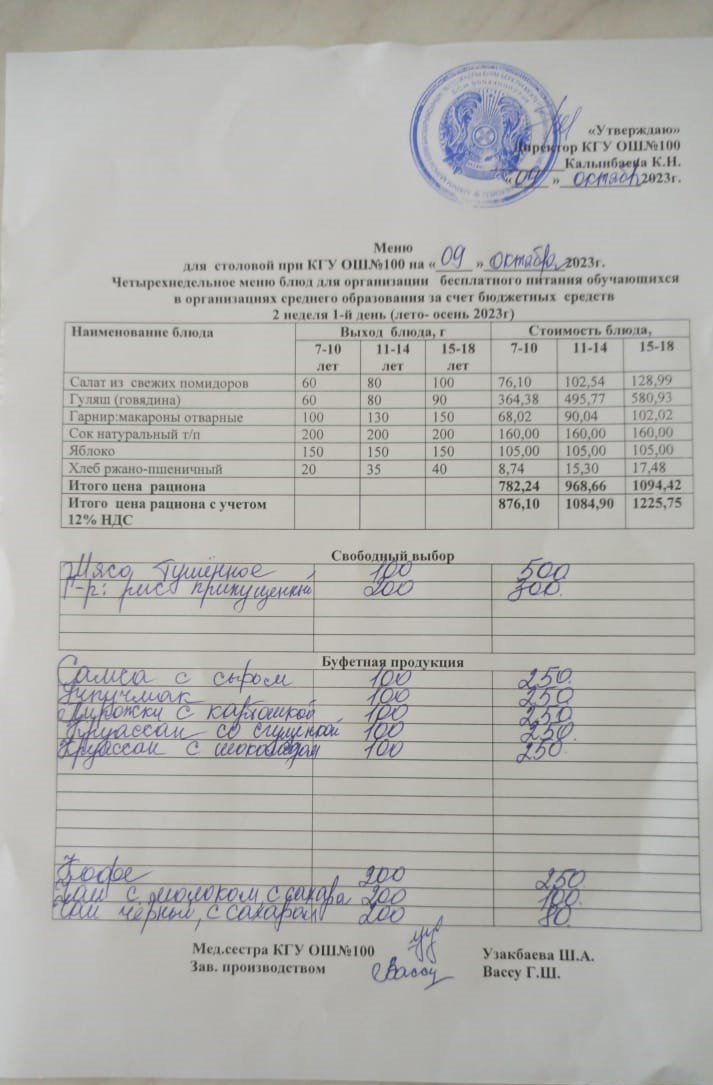 «Утверждаю»
Директор КГУ ОШ№100
Калынбаева К.Н.
«09» октябр 2023г.
Меню
для столовой при КГУ ОШ№100 на «09» октября 2023г.
Четырехнедельное меню блюд для организации бесплатного питания обучающихся
в организациях среднего образования за счет бюджетных средств
2 неделя 1-й день (лето- осень 2023г)
Наименование блюда Выход блюда, г Стоимость блюда,
7-10 лет 11-14 лет 15-18 лет 7-10 11-14 15-18
Салат из свежих помидоров 60 80 100 76,10 102,54 128,99
Гуляш (говядина) 60 80 90 364,38 495,77 580,93
Гарнир:макароны отварные 100 130 150 68,02 90,04 102,02
Сок натуральный т/п 200 200 200 160,00 160,00 160,00
Яблоко 150 150 150 105,00 105,00 105,00
Хлеб ржано-пшеничный 20 35 40 8,74 15,30 17,48
Итого цена рациона 782,24 968,66 1094,42
Итого цена рациона с учетом 876,10 1084,90 1225,75
12% НДС
Свободный выбор
Мясо тушёное 100 500
Г-р: рис припущенный 200 300.
Буфетная продукция
Самса с сыром 100 250.
Эчпучмак 100 250
Пирожки с картошкой 100 250
Круассан со сгущенкой 100 250.
Круассан с шоколадом 100 250.
Кофе 200 250.
Чай с молоком, с сахаро 200 100.
Чай чёрным, с сахаром 200 80.
Мед.сестра КГУ ОШ№100 Узакбаева Ш.А.
Зав. производством Вассу Вассу Г.Ш.